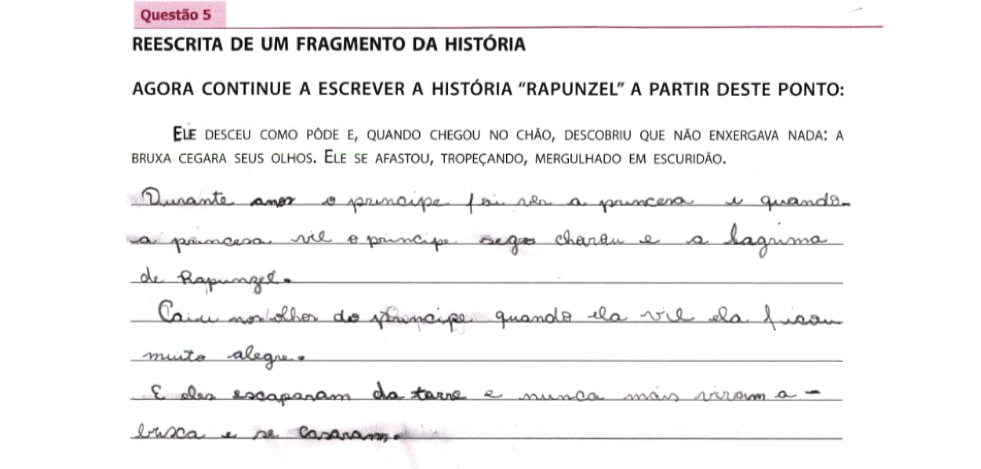 Questão 5
REESCRITA DE UM FRAGMENTO DA HISTÓRIA
AGORA CONTINUE A ESCREVER A HISTÓRIA “RAPUNZEL” A PARTIR DESTE PONTO:
ELE DESCEU COMO PÔDE E, QUANDO CHEGOU NO CHÃO, DESCOBRIU QUE NÃO ENXERGAVA NADA: A
BRUXA CEGARA SEUS OLHOS. ELE SE AFASTOU, TROPEÇANDO, MERGULHADO EM ESCURIDÃO.
Durante anos o principe foi ver a princesa e quando
a princesa vil o principe sego charau e a lagrima
de Rapunzel.
Caiu nos olhos do principe quando ela vil ela ficou
muito alegre.
E eles escaparam da torre e nunca mais viram a -
brusca e se casaram.